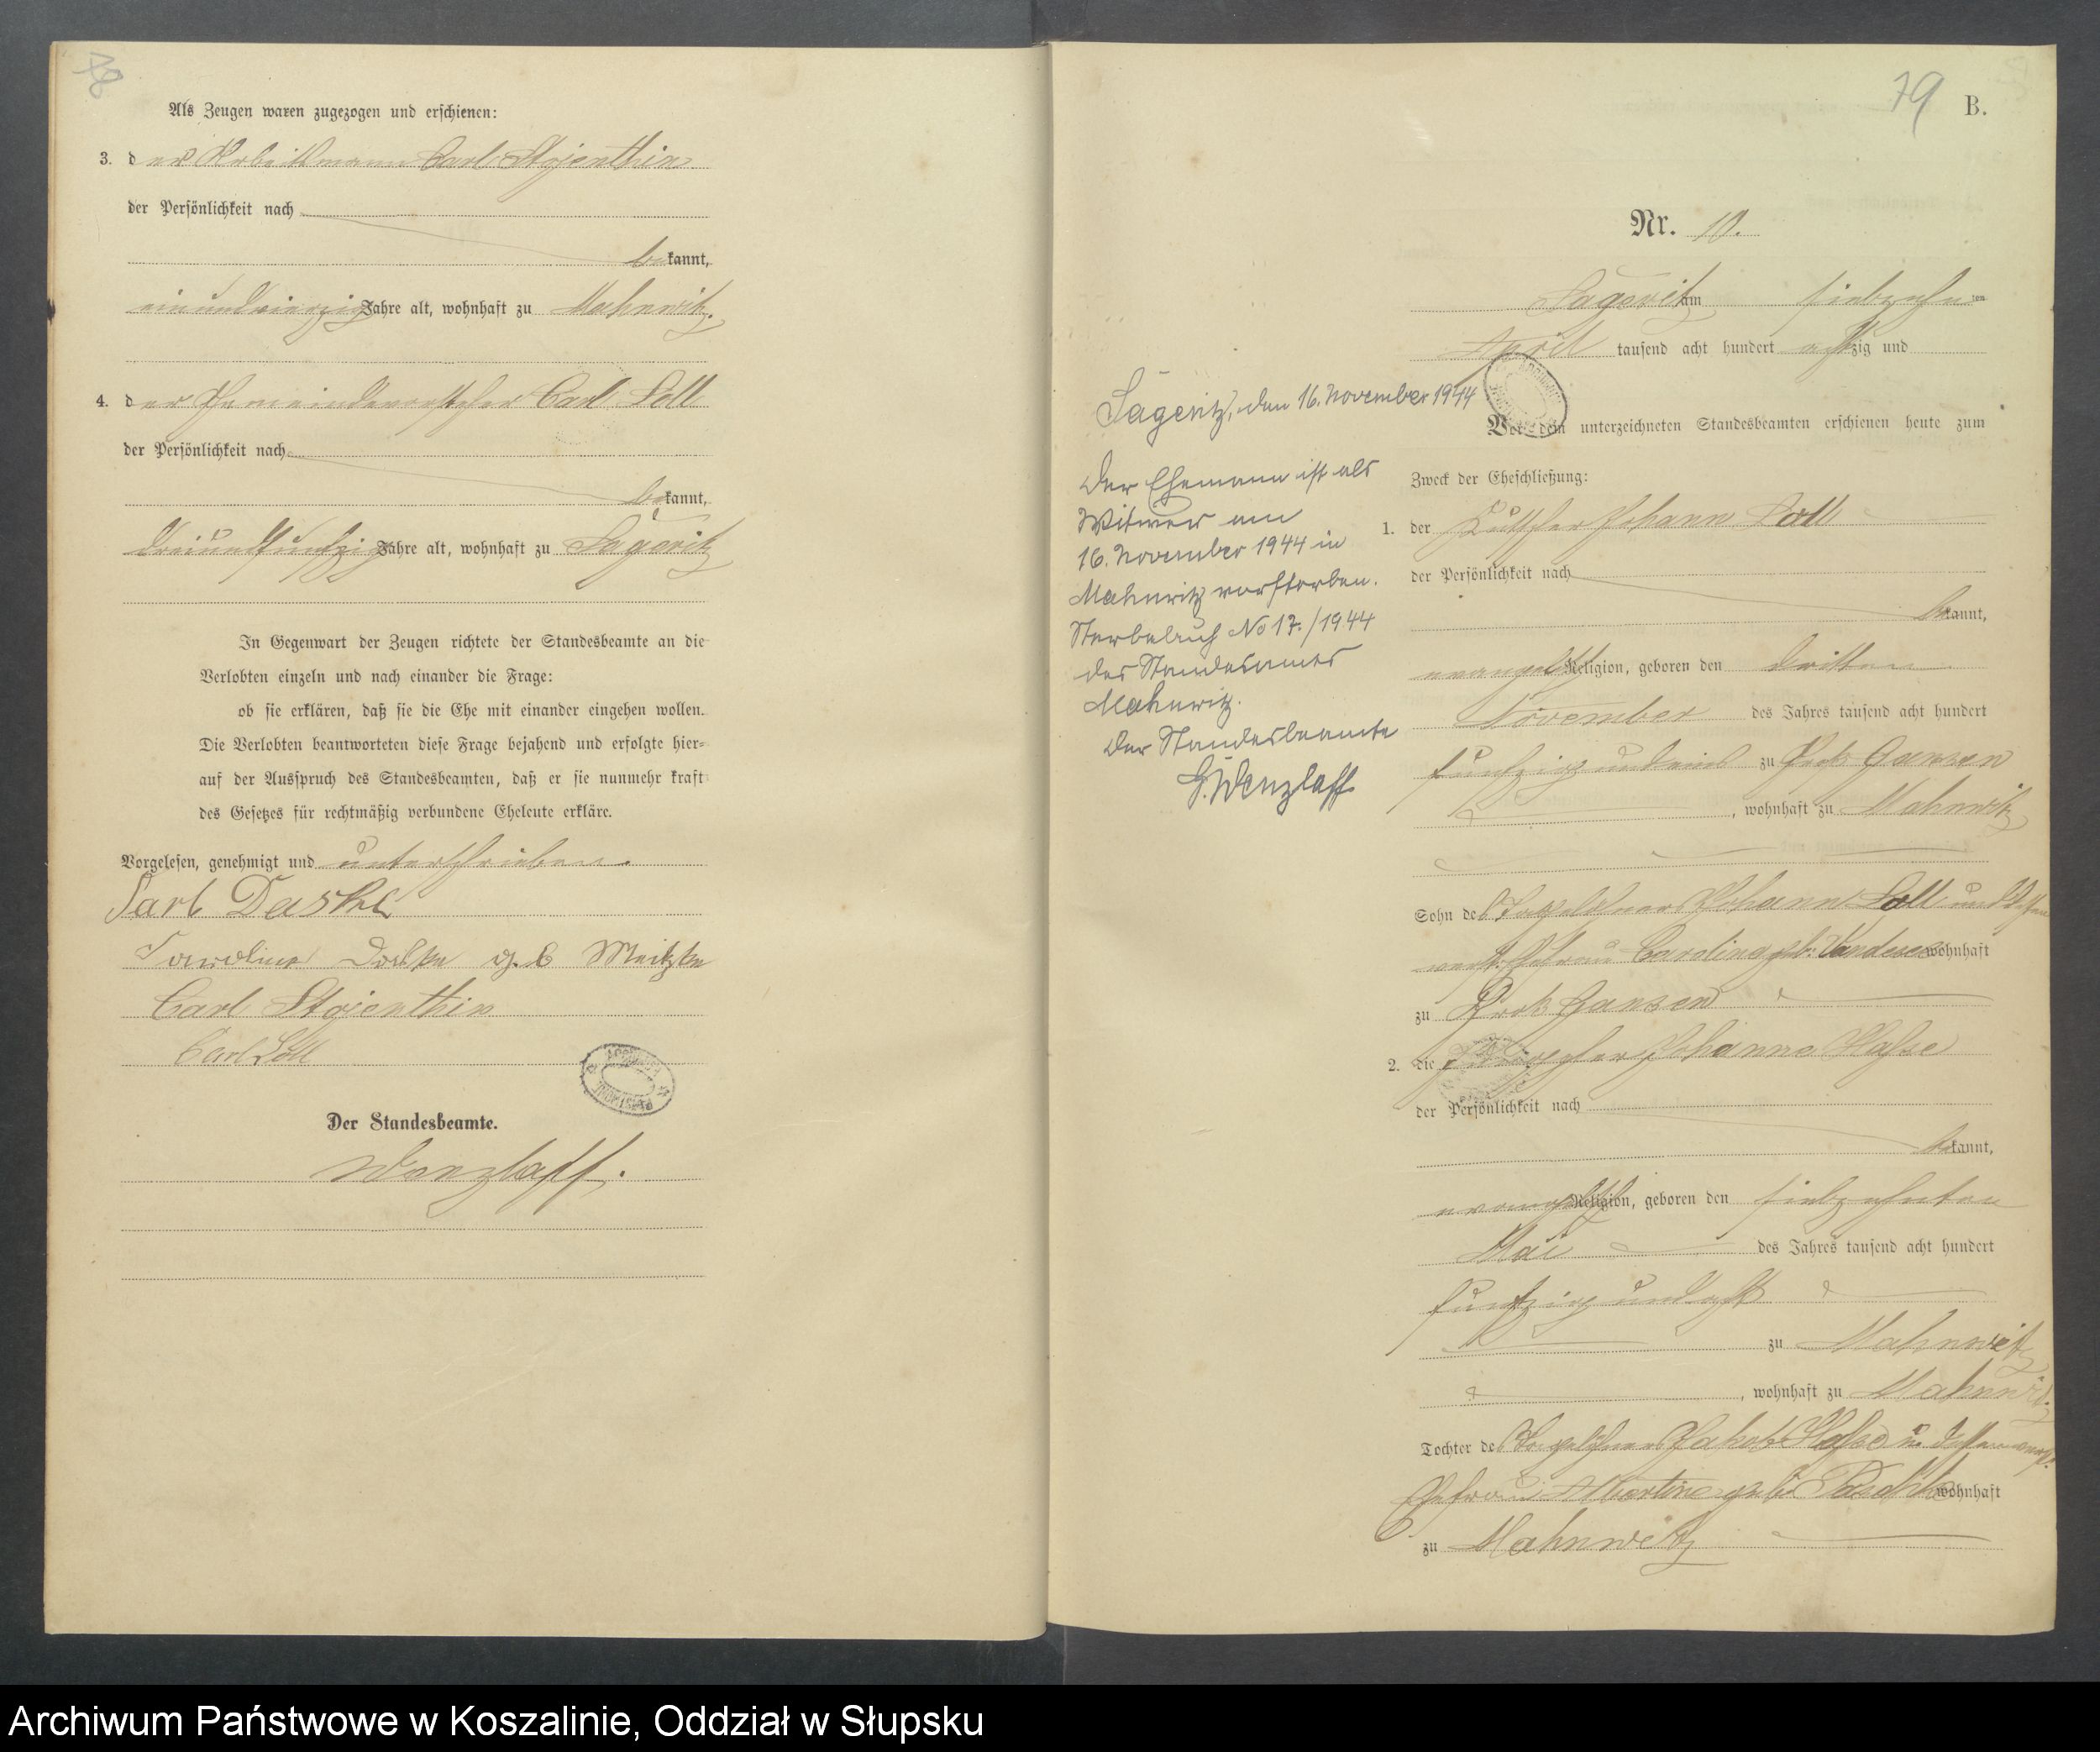 78
Als Zeugen waren zugezogen und erschienen:
3. der Arbeitsmann Carl Stojenthin
der Persönlichkeit nach
bekannt,
einundvierzig Jahre alt, wohnhaft zu Mahnwitz.
4. der Gemeindevorsteher Carl Soll
der Persönlichkeit nach
bekannt,
dreiundfunfzig Jahre alt, wohnhaft zu Sageritz
In Gegenwart der Zeugen richtete der Standesbeamte an die
Verlobten einzeln und nach einander die Frage:
ob sie erklären, daß sie die Ehe mit einander eingehen wollen.
Die Verlobten beantworteten diese Frage bejahend und erfolgte hier-
auf der Ausspruch des Standesbeamten, daß er sie nunmehr kraft
des Gesetzes für rechtmäßig verbundene Eheleute erkläre.
Vorgelesen, genehmigt und unterschrieben.
Carl
Caroline geb Meitzke
Carl Stojenthin
Carl Soll
Der Standesbeamte.
Wenzlaff.
79 B.
Nr. 10.
Sageritz am siebzehnten
April tausend acht hundert achtzig und
Vor dem unterzeichneten Standesbeamten erschienen heute zum
Zweck der Eheschließung:
1. der Kutscher Johann Soll
der Persönlichkeit nach
bekannt,
evangelisch Religion, geboren den dritten
November des Jahres tausend acht hundert
funfzig und eins zu Gansen
, wohnhaft zu Mahnwitz
Sohn des Tagelöhners Johann Soll und dessen
verst. Ehefrau Caroline geb. wohnhaft
zu Gansen
2. die Johanne Hasse
der Persönlichkeit nach
bekannt,
evangelisch Religion, geboren den siebzehnten
Mai des Jahres tausend acht hundert
funfzig und acht
zu Mahnwitz
, wohnhaft zu Mahnwitz
Tochter des Tagelöhners Jakob Hasse u. dessen verst.
Ehefrau Albertine geb. wohnhaft
zu Mahnwitz
Sageritz, den 16. November 1944
Der Ehemann ist als
Witwer am
16. November 1944 in
Mahnwitz verstorben.
Sterbebuch No 17./1944
des Standesamts
Mahnwitz.
Der Standesbeamte
G. Wenzlaff
Archiwum Państwowe w Koszalinie, Oddział w Słupsku